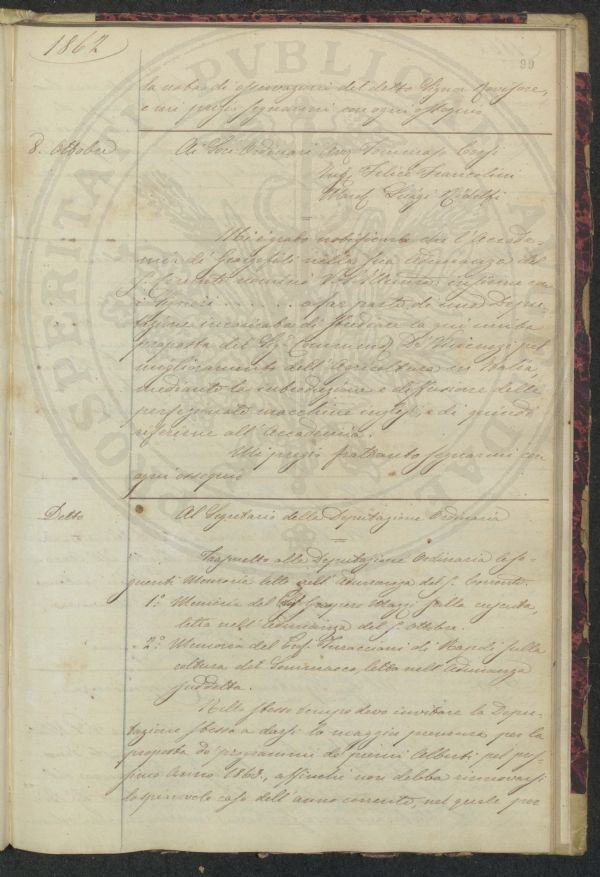 1862
99
la nota di osservazioni del detto Signor Revisore,
e mi pregio segnarmi con ogni ossequio
8. Ottobre
Ai Soci Ordinari Avv. Tommaso Corsi
Ing. Felice Francolini
March. Luigi Ridolfi
Mi è grato notificarle che l'Accade-
mia de' Georgofili nella sua adunanza del
5. corrente nominò V. S. Illma insieme coi
Signori . . . . . . . a far parte di una Depu-
tazione incaricata di studiare la qui unita
proposta del Sig. Commend. De' Vincenzi pel
miglioramento dell'Agricoltura in Italia,
mediante la introduzione e diffusione delle
perfezionate macchine inglesi, e di quindi
riferirne all'Accademia.
Mi pregio frattanto segnarmi con
ogni ossequio
Detto
Al Segretario della Deputazione Ordinaria
Trasmetto alla Deputazione Ordinaria le se-
guenti Memorie lette nell'Adunanza del 5. corrente.
1.° Memoria del Gaspero Mazzi sulla
letta nell'Adunanza del 5. Ottobre.
2.° Memoria del Prof. di Napoli sulla
coltura del Sommacco, letta nell'Adunanza
suddetta.
Nello stesso tempo devo invitare la Depu-
tazione stessa a darsi la maggior premura per la
proposta de' programmi de' premi Alberti pel pros-
simo Anno 1863., affinchè non debba rinnovarsi
lo spiacevole caso dell'anno corrente, nel quale per